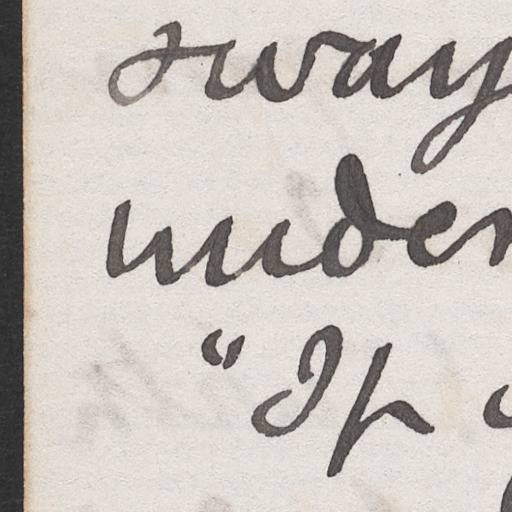 sway
under
"If